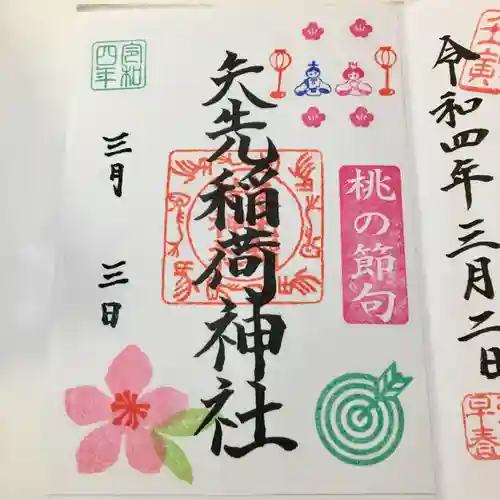 壬寅
令和四年三月二日
早春
桃の節句
矢先稲荷神社
令和
四年
三月 三日